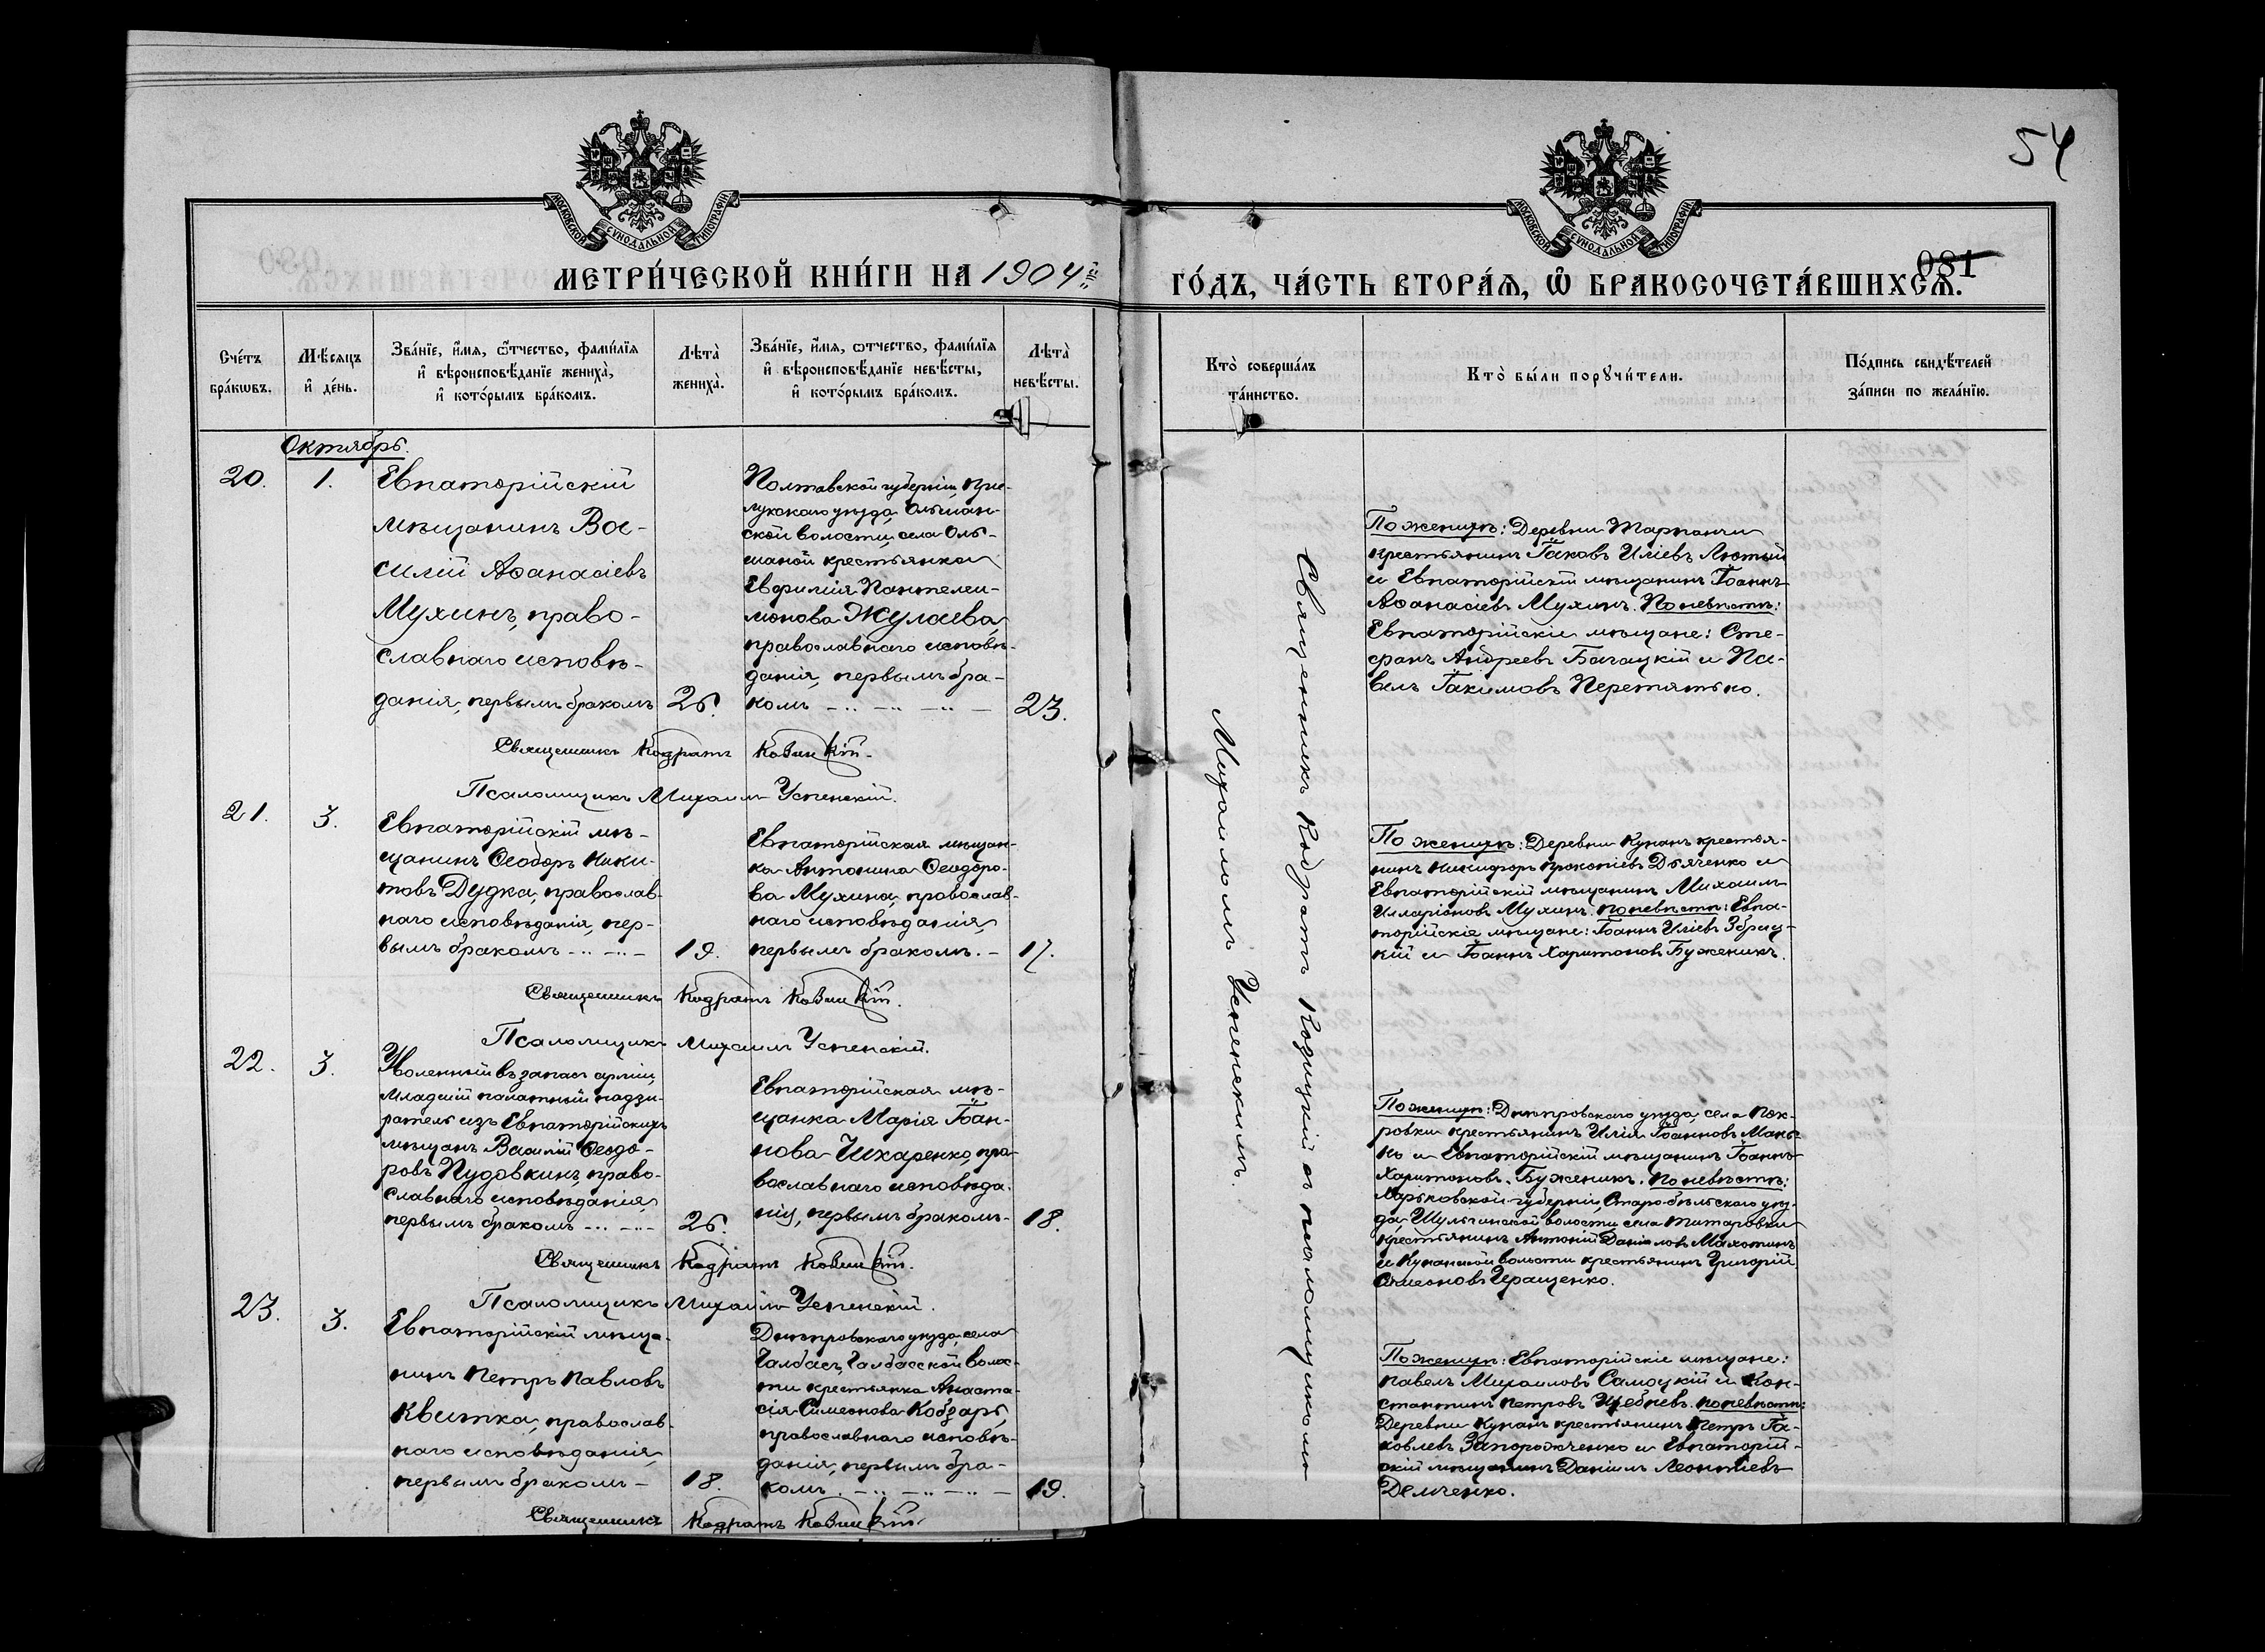 54
МОСКОВСКОЙ СѴНОДАЛЬНОЙ ТИПОГРАФІИ
МОСКОВСКОЙ СѴНОДАЛЬНОЙ ТИПОГРАФІИ
081
МЕТРИ́ЧЕСКОЙ КНИ́ГИ НА 1904
ГО́ДЪ, ЧА́СТЬ ВТОРА́Ѧ, Ѽ БРАКОСОЧЕТА́ВШИХСѦ.
Сче́тъ
бра́кѡвъ.
Мѣ́сяцъ
и҆ де́нь.
Зва́нїе, и҆́мя, ѻ҆́тчество, фами́лїя
и҆ вѣроисповѣ́данїе жениха̀,
и҆ кото́рымъ бра́комъ.
Лѣта̀
жениха̀.
Зва́нїе, и҆́мя, ѻ҆́тчество, фами́лїя
и҆ вѣроисповѣ́данїе невѣ́сты,
и҆ кото́рымъ бра́комъ.
Лѣта̀
невѣ́сты.
Кто̀ соверша́лъ
та́инство.
Кто̀ бы́ли порꙋчи́тели.
По́дпись свидѣ́телей
за́писи по жела́нїю.
Октябрь.
20.
1.
Евпаторійскій
мѣщанинъ Ва-
силій Аѳанасіевъ
Мухинъ, право-
славнаго исповѣ-
данія, первымъ бракомъ
26.
Полтавской губерніи, При-
лукскаго уѣзда, Ольшан-
ской волости, села Оль-
шаной крестьянка
Евфимія Пантелеи-
монова Жулаева
православнаго исповѣ-
данія, первымъ бра-
комъ
23.
По женихѣ: Деревни Тарпанчи
крестьянинъ Іаковъ Иліевъ Лютый
и Евпаторійскій мѣщанинъ Іоаннъ
Аѳанасіевъ Мухинъ. По невѣстѣ:
Евпаторійскіе мѣщане: Сте-
фанъ Андреевъ Багацкій и Па-
велъ Іакимовъ Перетятько.
Священникъ Кодратъ Козицкій
Псаломщикъ Михаилъ Успенскій.
21.
3.
Евпаторійскій мѣ-
щанинъ Ѳеодоръ Ники-
товъ Дудка, православ-
наго исповѣданія, пер-
вымъ бракомъ
19.
Евпаторійская мѣщан-
ка Антонина Ѳеодоро-
ва Мухина, православ-
наго исповѣданія,
первымъ бракомъ.
17.
По женихѣ: Деревни Кунанъ крестья-
нинъ Никифоръ Прокопіевъ Дьяченко и
Евпаторійскій мѣщанинъ Михаилъ
Илларіоновъ Мухинъ. По невѣстѣ: Евпа-
торійскіе мѣщане: Іоаннъ Иліевъ Збриц-
кій и Іоаннъ Харитоновъ Буженикъ.
Священникъ Кодратъ Козицкій.
Псаломщикъ Михаилъ Успенскій.
22.
3.
Уволенный въ запасъ арміи,
младшій палатный надзи-
ратель изъ Евпаторійскихъ
мѣщанъ Василій Ѳеодо-
ровъ Пудовкинъ, право-
славнаго исповѣданія,
первымъ бракомъ
26.
Евпаторійская мѣ-
щанка Марія Іоан-
нова Шкаренко, пра-
вославнаго исповѣда-
нія, первымъ бракомъ
18.
По женихѣ: Днѣпровскаго уѣзда, села Пок-
ровки крестьянинъ Илія Іоанновъ Мань-
ко и Евпаторійскій мѣщанинъ Іоаннъ
Харитоновъ Буженикъ. По невѣстѣ:
Харьковской губерніи, Старобѣльскаго уѣз-
да, Шульгинской волости села Титаровки
крестьянинъ Антоній Даніиловъ Махотинъ
и Кунанской волости крестьянинъ Григорій
Симеоновъ Геращенко.
Священникъ Кодратъ Козицкій.
Псаломщикъ Михаилъ Успенскій.
23.
3.
Евпаторійскій мѣща-
нинъ Петръ Павловъ
Квитка, православ-
наго исповѣданія,
первымъ бракомъ
18.
Днѣпровскаго уѣзда, села
Чалбасъ, Чалбасской волос-
ти крестьянка Анаста-
сія Симеонова Кобзарь,
православнаго исповѣ-
данія, первымъ бра-
комъ
19.
По женихѣ: Евпаторійскіе мѣщане:
Павелъ Михаиловъ Самоцкій и Кон-
стантинъ Петровъ Щебневъ. По невѣстѣ:
Деревни Кунанъ крестьянинъ Петръ Іа-
ковлевъ Запорожченко и Евпаторій-
скій мѣщанинъ Даніилъ Леонтіевъ
Демченко.
Священникъ Кодратъ Козицкій
Священникъ Кодратъ Козицкій съ псаломщикомъ
Михаиломъ Успенскимъ.